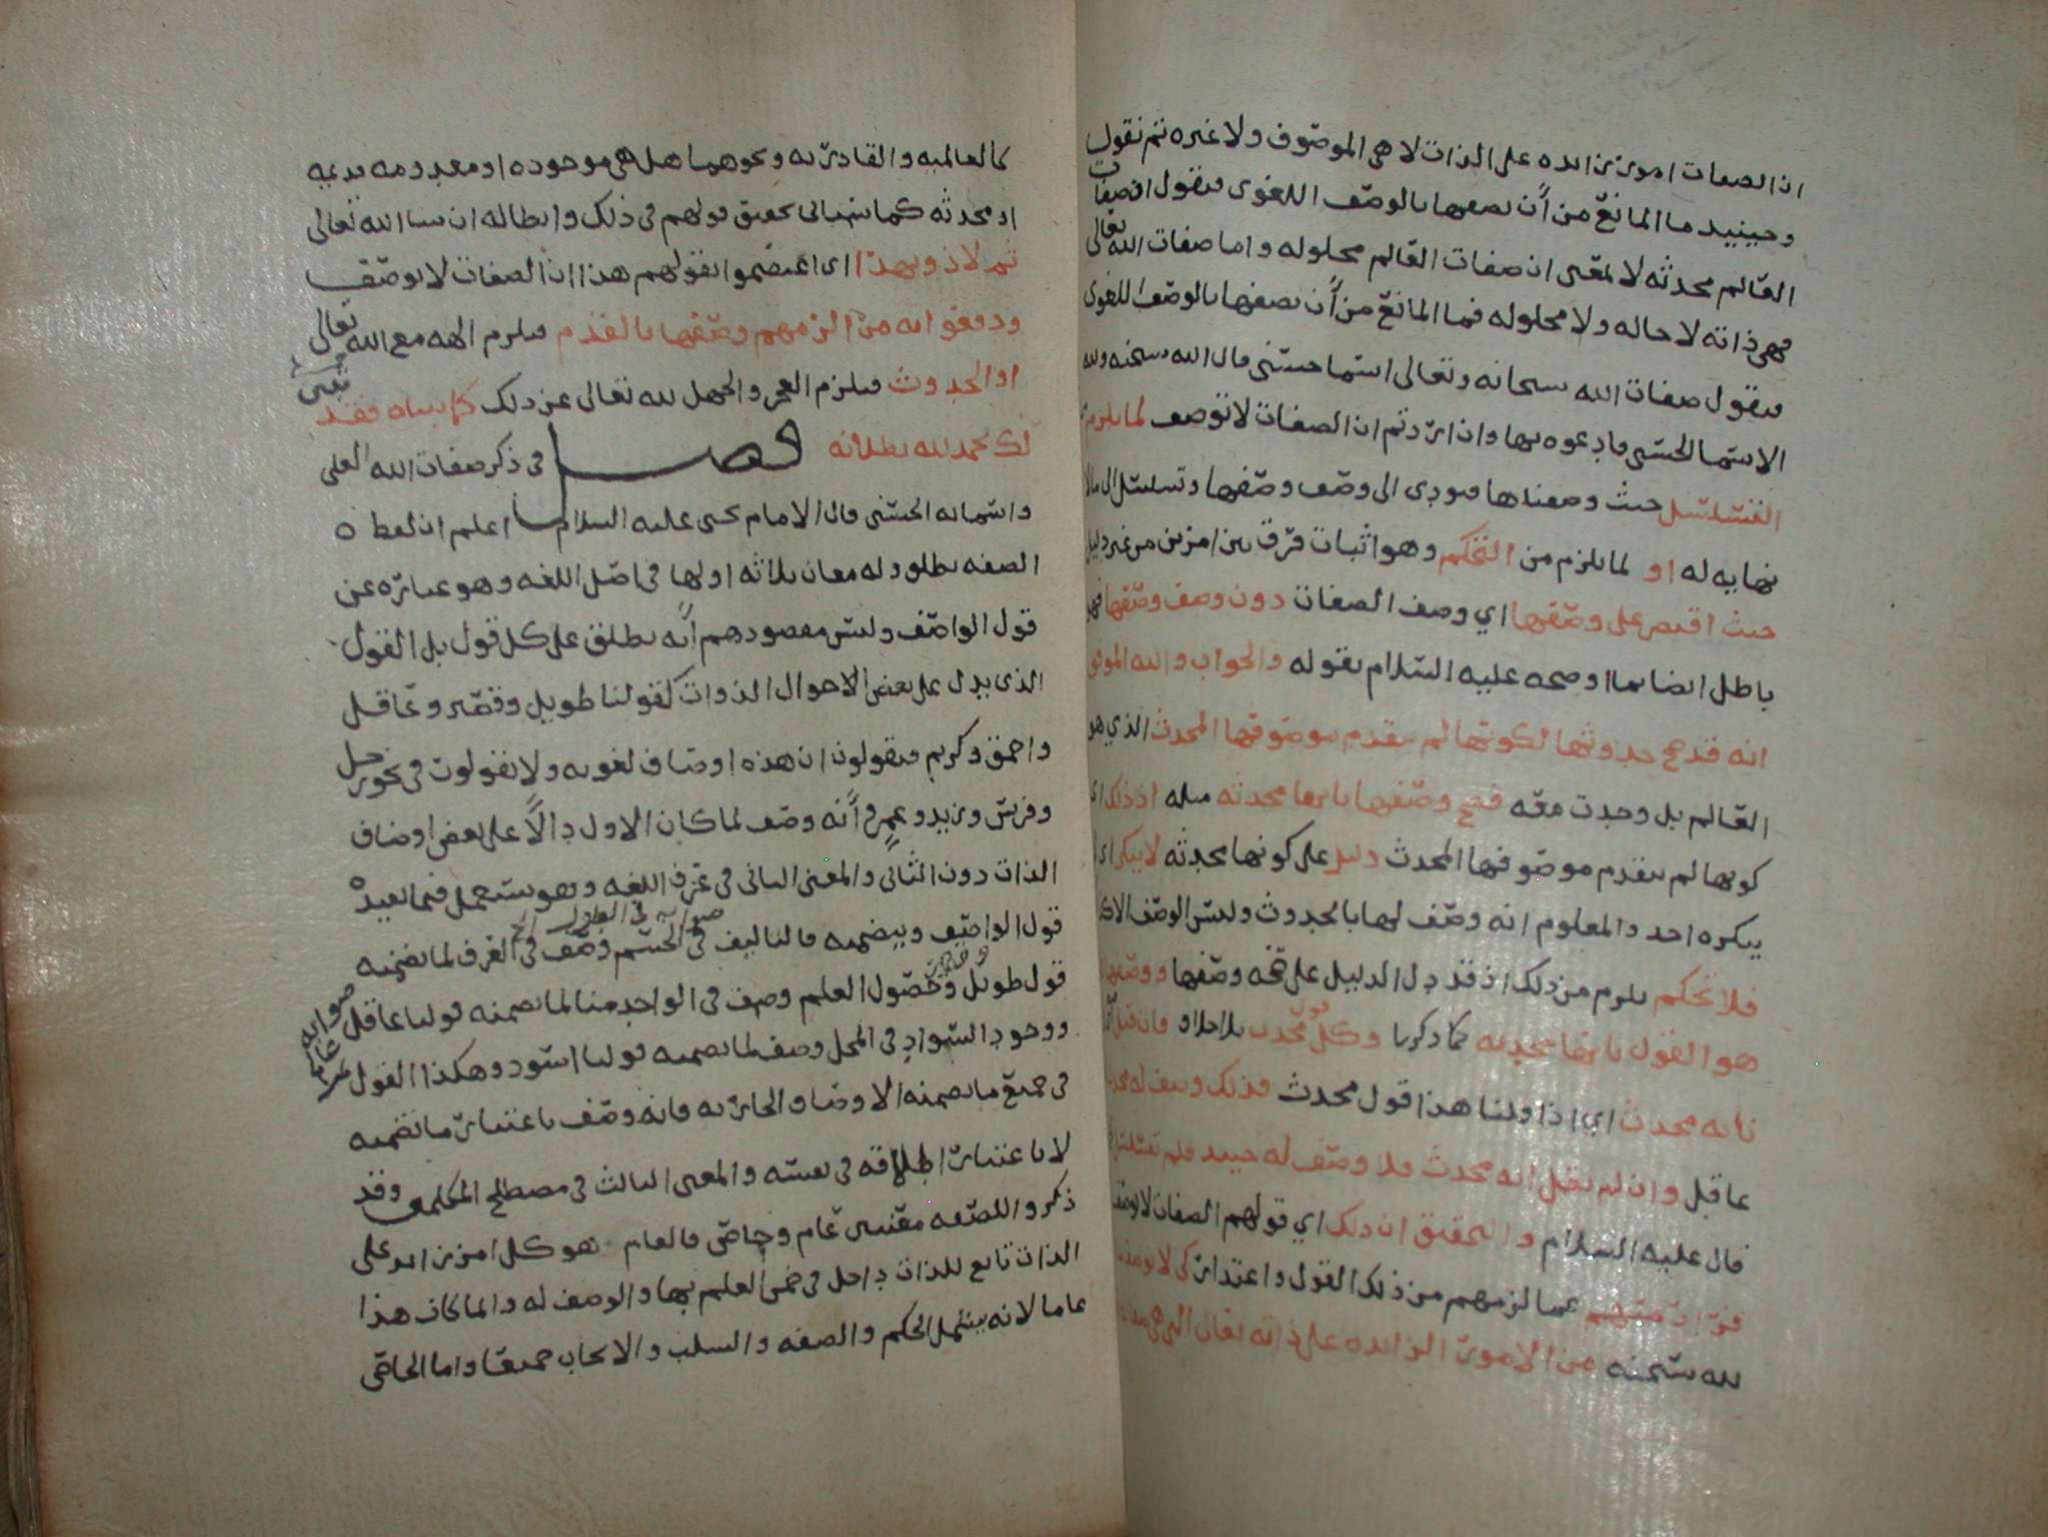 ان الصفات امور زايده على الذات لا هي الموصوف ولا غيره ثم نقول
وحينيد ما المانع من أن نصفها بالوصف اللغوي فنقول ان صفات
العالم محدثه لا لمعنى ان صفات العالم محلوله واما صفات الله تعالى
فهي ذاته لا حاله ولا محلوله فما المانع من أن نصفها بالوصف اللغوي
فنقول صفات الله سبحانه وتعالى اسما حسنى قال الله سبحنه ولله
الاسما الحسنى فادعوه بها وان اردتم ان الصفات لا توصف لما يلزم
التسلسل حيث وصفناها فيودي الى وصف وصفها وتسلسل الى مالا
نهايه له او لما يلزم من التحكم وهو اثبات فرق بين امرين من غير دليل
حيث اقتصر على وصفها اي وصف الصفات دون وصف وصفها فهو
باطل ايضا بما اوضحه عليه السلام بقوله والجواب والله الموفق
انه قد صح حدوثها لكونها لم تتقدم موصوفها المحدث الذي هو
العالم بل وجدت معه فصح وصفها بانها محدثه مثله اذ ذلك اي
كونها لم تتقدم موصوفها المحدث دليل على كونها محدثه لا ينكر اي لا
ينكره احد والمعلوم انه وصف لها بالحدوث وليس الوصف الا كذا
فلا تحكم يلزم من ذلك اذ قد دل الدليل على صحة وصفها ووصفها
هو القول بانها محدثه كما ذكرنا وكل قول محدث بلا خلاف فان قيل
بانه محدث اي اذا قلنا هذا قول محدث فذلك وصف له
عاقل وان لم يقل انه محدث فلا وصف له حينيد فلم تتسلسل
قال عليه السلام والتحقيق ان ذلك اي قولهم الصفات لا توصف
فرار منهم عما لزمهم من ذلك القول واعتذار كي لا يوصف
لله سبحنه من الامور الزايده على ذاته تعالى التي هي
كالعالميه والقادريه ونحوهما هل هي موجوده او معدومه قديمه
او محدثه كما سياتي تحقيق قولهم في ذلك وابطاله ان شا الله تعالى
ثم لاذوا بهذا اي اعتصموا بقولهم هذا ان الصفات لا توصف
ودفعوا به من الزمهم وصفها بالقدم فيلزم اله مع الله تعالى
او الحدوث فيلزم العجز والجهل لله تعالى عن ذلك كما بيناه فقد تبين
لك بحمد لله بطلانه فصل في ذكر صفات الله العلى
واسمائه الحسنى قال الامام يحيى عليه السلام اعلم ان لفظه
الصفه يطلق وله معان ثلاثه اولها في اصل اللغه وهو عباره عن
قول الواصف وليس مقصودهم أنه يطلق على كل قول بل القول
الذي يدل على بعض الاحوال الذوات كقولنا طويل وقصير وعاقل
واحمق وكريم فيقولون ان هذه اوصاف لغويه ولا يقولون في نحو رجل
وفرس وزيد وعمرو أنه وصف لما كان الاول دالًا على بعض اوصاف
الذات دون الثاني والمعنى الثاني في عرف اللغه وهو يستعمل فيما يفيده
قول الواصف ويتضمنه فالتاليف في الجسم وصف في العرف لما تضمنه
قول طويل وحصول العلم وصف في الواحد منا لما تضمنه قولنا عاقل صوابه عالم
ووجود السواد في المحل وصف لما تضمنه قولنا اسود وهكذا القول
في جميع ما تضمنه الاوصاف الجاريه فانه وصف باعتبار ما تضمنه
لا باعتبار اطلاقه في نفسه والمعنى الثالث في مصطلح المتكلمين وقد
ذكروا للصفه معنيين عام وخاص فالعام هو كل امر زايد على
الذات تابع للذات داخل في ضمن العلم بها والوصف له وانما كان هذا
عاما لانه يشمل الحكم والصفه والسلب والايجاب جميعا واما الخاص